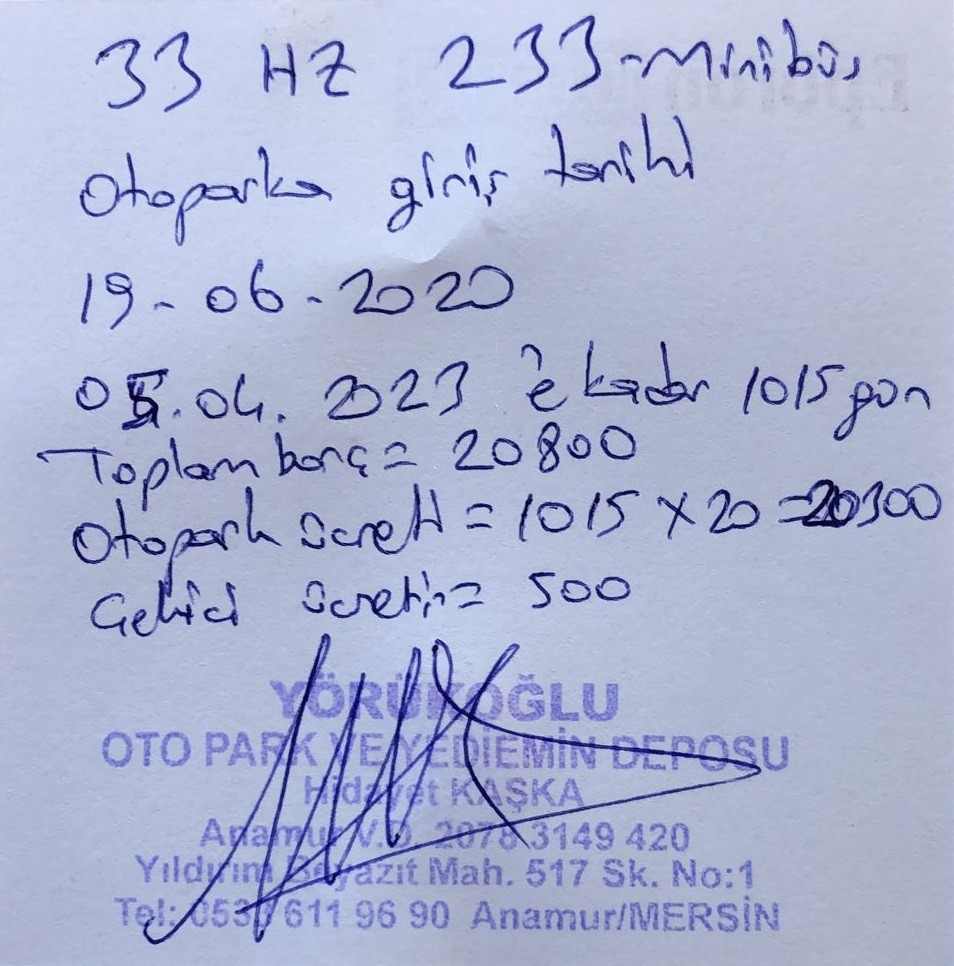 33 HZ 233-minibüs
Otoparka giriş tarihi
19-06-2020
05.04.2023 'e kadar 1015 gün
Toplam borç = 20800
Otopark ücreti = 1015 x 20 = 20300
Çekici ücreti = 500
YÖRÜKOĞLU
OTO PARK VE YEDİEMİN DEPOSU
Hidayet KAŞKA
Anamur V.D. 2078 3149 420
Yıldırım Beyazıt Mah. 517 Sk. No:1
Tel: 611 96 90 Anamur/MERSİN